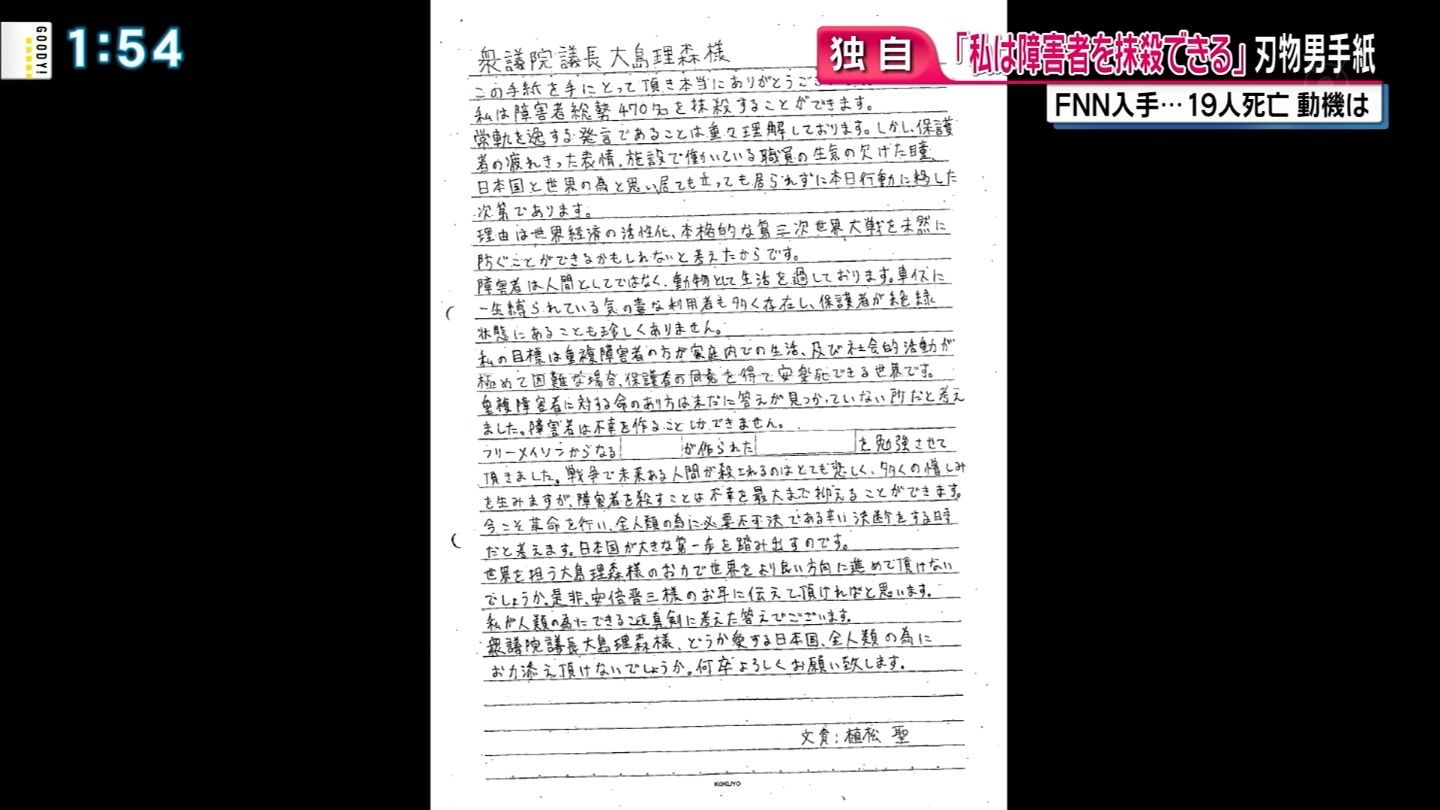 GOODY!
1:54
独自
「私は障害者を抹殺できる」刃物男手紙
FNN入手…19人死亡 動機は
衆議院議長大島理森様
この手紙を手にとって頂き本当にありがとうござ
私は障害者総勢470名を抹殺することができます。
常軌を逸する発言であることは重々理解しております。しかし、保護
者の疲れきった表情、施設で働いている職員の生気の欠けた瞳、
日本国と世界の為と思い居ても立っても居られずに本日行動に移した
次第であります。
理由は世界経済の活性化、本格的な第三次世界大戦を未然に
防ぐことができるかもしれないと考えたからです。
障害者は人間としてではなく、動物として生活を過しております。車イスに
一生縛られている気の毒な利用者も多く存在し、保護者が絶縁
状態にあることも珍しくありません。
私の目標は重複障害者の方が家庭内での生活、及び社会的活動が
極めて困難な場合、保護者の同意を得て安楽死できる世界です。
重複障害者に対する命のあり方は未だに答えが見つかっていない所だと考え
ました。障害者は不幸を作ることしかできません。
フリーメイソンからなる が作られた を勉強させて
頂きました。戦争で未来ある人間が殺されるのはとても悲しく、多くの憎しみ
を生みますが、障害者を殺すことは不幸を最大まで抑えることができます。
今こそ革命を行い、全人類の為に必要不可決である辛い決断をする時
だと考えます。日本国が大きな第一歩を踏み出すのです。
世界を担う大島理森様のお力で世界をより良い方向に進めて頂けない
でしょうか。是非、安倍晋三様のお耳に伝えて頂ければと思います。
私が人類の為にできることを真剣に考えた答えでございます。
衆議院議長大島理森様、どうか愛する日本国、全人類の為に
お力添え頂けないでしょうか。何卒よろしくお願い致します。
文責:植松 聖
KOKUYO